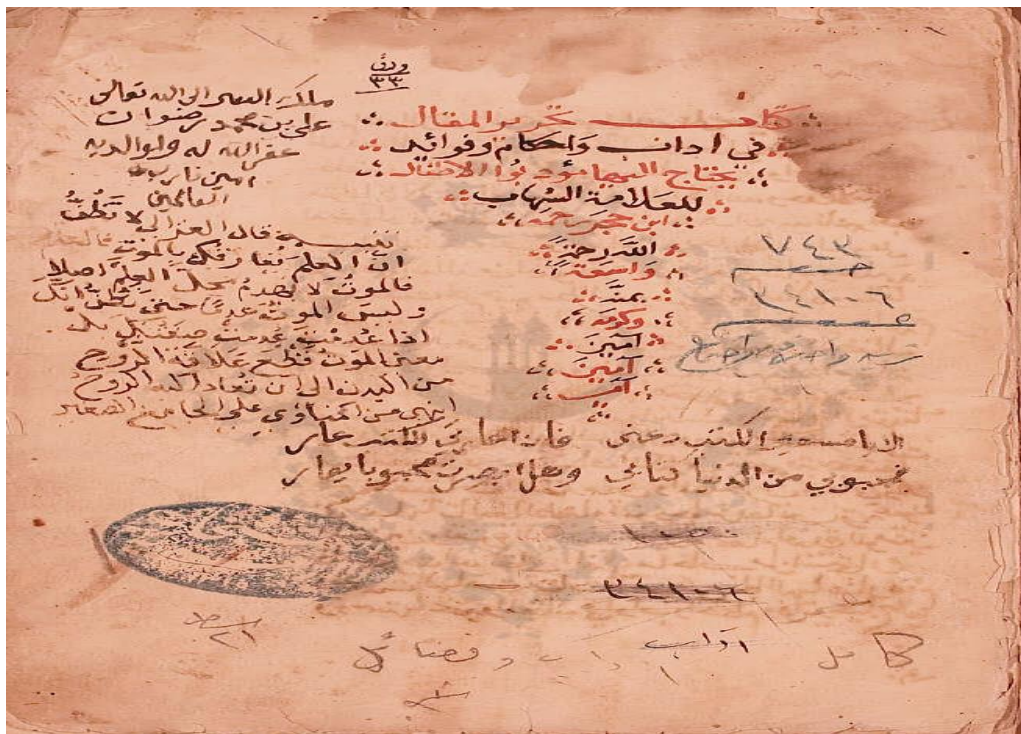 ورق
٣٣
كتاب تحرير المقال
في اداب واحكام وفوائد
يحتاج اليها مؤدبوا الاطفال
للعلامة الشهاب
ابن حجر رحمه
الله رحمة
واسعة
بمنه
وكرمه
آمين
آمين
آمـ
ملكه الفقير الى الله تعالى
علي بن محمد رضوان
غفر الله له ولوالديه
امين يا رب
العالمين
تنبيه قال الغزالي لا تظن
ان العلم يفارقك بالموت
فالموت لا يهدم محل العلم اصلا
وليس الموت عدما حتى تظن انك
اذا عدمت عدمت صفتك بل
معنى الموت قطع علاقة الروح
من البدن الى ان تعاد اليه الروح
من المناوي على الجامع الصغير
٧٤٣
٣٤١٠٦
الا يا مستعير الكتب دعني فان اعارتي للكتب عار
محبوبي من الدنيا كتابي وهل ابصرت محبوبا يعار
٣٤١٠٦
٢١
اداب
كامل اداب وفضائل